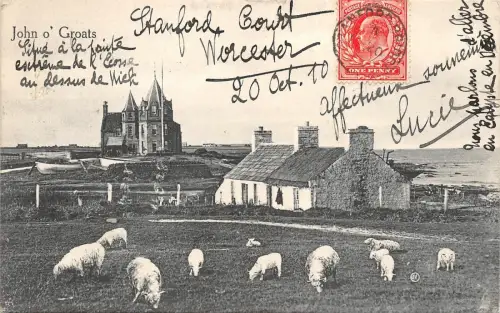 John o' Groats
Situé à la pointe
extrême de l'Ecosse
au dessus de Wich
Stanford Court
Worcester
20 Oct. 10
ONE PENNY
Affectueux souvenir
Lucie
nous parlons d'aller
en Egypte en Novembre